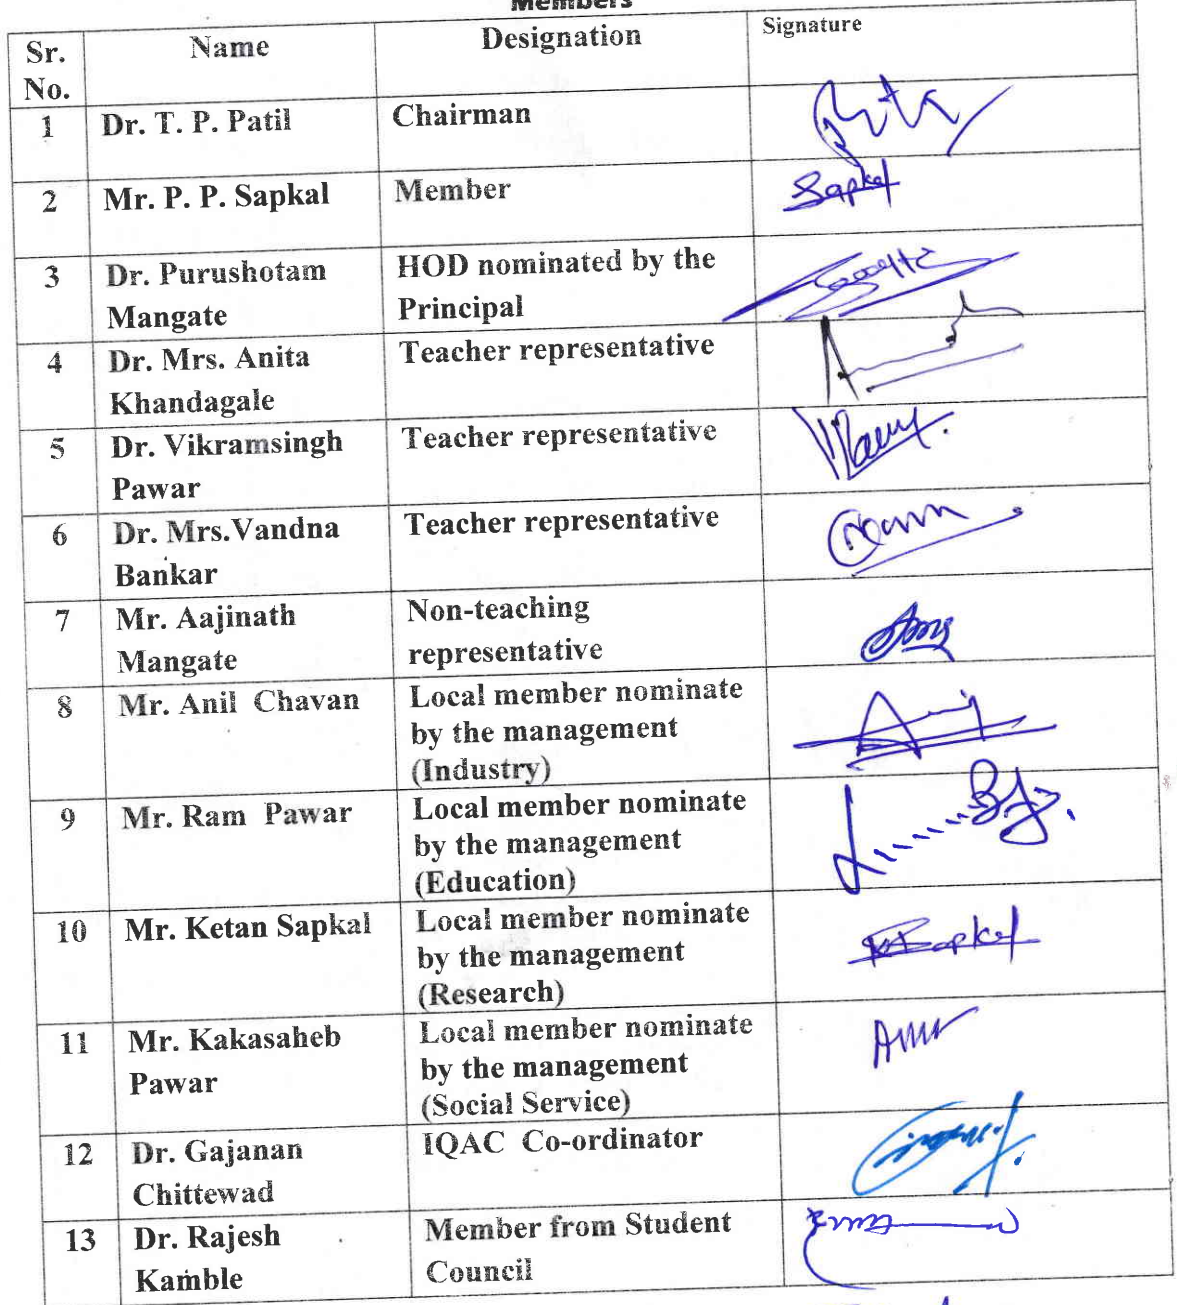 Members
Sr. No. Name Designation Signature
1 Dr. T. P. Patil Chairman
2 Mr. P. P. Sapkal Member Sapkal
3 Dr. Purushotam HOD nominated by the
Mangate Principal
4 Dr. Mrs. Anita Teacher representative
Khandagale
5 Dr. Vikramsingh Teacher representative
Pawar
6 Dr. Mrs.Vandna Teacher representative
Bankar
7 Mr. Aajinath Non-teaching
Mangate representative
8 Mr. Anil Chavan Local member nominate
by the management
(Industry)
9 Mr. Ram Pawar Local member nominate
by the management
(Education)
10 Mr. Ketan Sapkal Local member nominate
by the management
(Research)
11 Mr. Kakasaheb Local member nominate
Pawar by the management
(Social Service)
12 Dr. Gajanan IQAC Co-ordinator
Chittewad
13 Dr. Rajesh Member from Student
Kamble Council